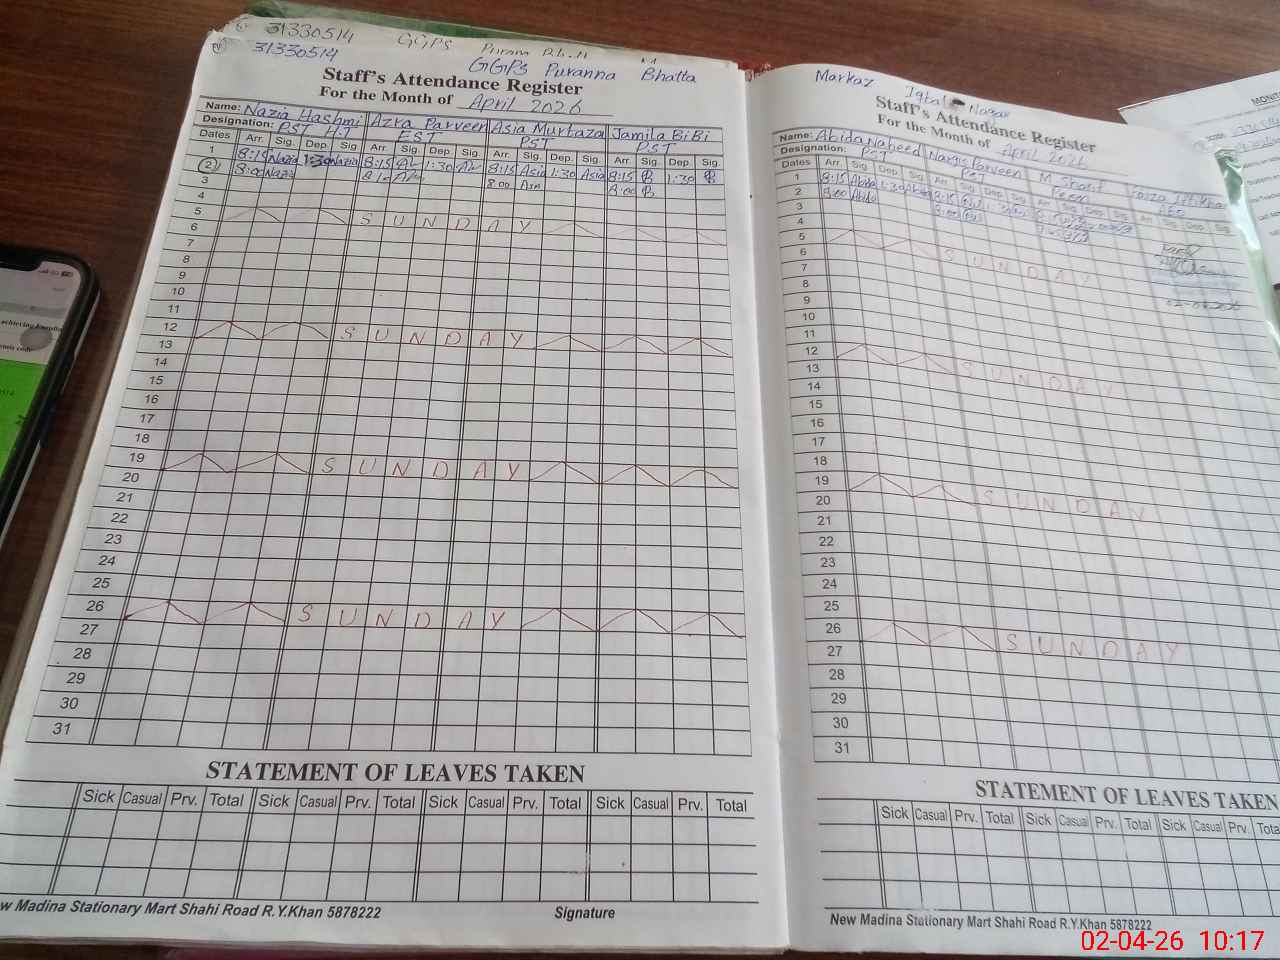 31330514 GGPS
31330514
GGPS Puranna Bhatta
Staff's Attendance Register
For the Month of April 2026
Name: Nazia Hashmi Azra Parveen Asia Murtaza Jamila BiBi
Designation: PST H.T EST PST PST
Dates Arr. Sig. Dep. Sig. Arr. Sig. Dep. Sig. Arr. Sig. Dep. Sig. Arr. Sig. Dep. Sig.
1 8:15 Nazia 1:30 Nazia 8:15 1:30 8:15 Asia 1:30 Asia 8:15 1:30
2 8:00 Nazia 8:00 8:00
3
4
5 SUNDAY
6
7
8
9
10
11
12 SUNDAY
13
14
15
16
17
18
19 SUNDAY
20
21
22
23
24
25
26 SUNDAY
27
28
29
30
31
STATEMENT OF LEAVES TAKEN
Sick Casual Prv. Total Sick Casual Prv. Total Sick Casual Prv. Total Sick Casual Prv. Total
w Madina Stationary Mart Shahi Road R.Y.Khan 5878222 Signature
Markaz Iqbal Nagar
Staff's Attendance Register
For the Month of April 2026
Name: Abida Naheed Nargis Parveen M Sharif
Designation: PST PST Peon
Dates Arr. Sig. Dep. Sig. Arr. Sig. Dep. Sig. Arr. Sig. Dep. Sig. Arr. Sig. Dep. Sig.
1 8:15 Abida 1:30 Abida 8:15
2 8:00 Abida 8:00
3
4
5 SUNDAY
6
7
8
9
10
11
12 SUNDAY
13
14
15
16
17
18
19 SUNDAY
20
21
22
23
24
25
26 SUNDAY
27
28
29
30
31
STATEMENT OF LEAVES TAKEN
Sick Casual Prv. Total Sick Casual Prv. Total Sick Casual Prv. Total
New Madina Stationary Mart Shahi Road R.Y.Khan 5878222
02-04-26 10:17